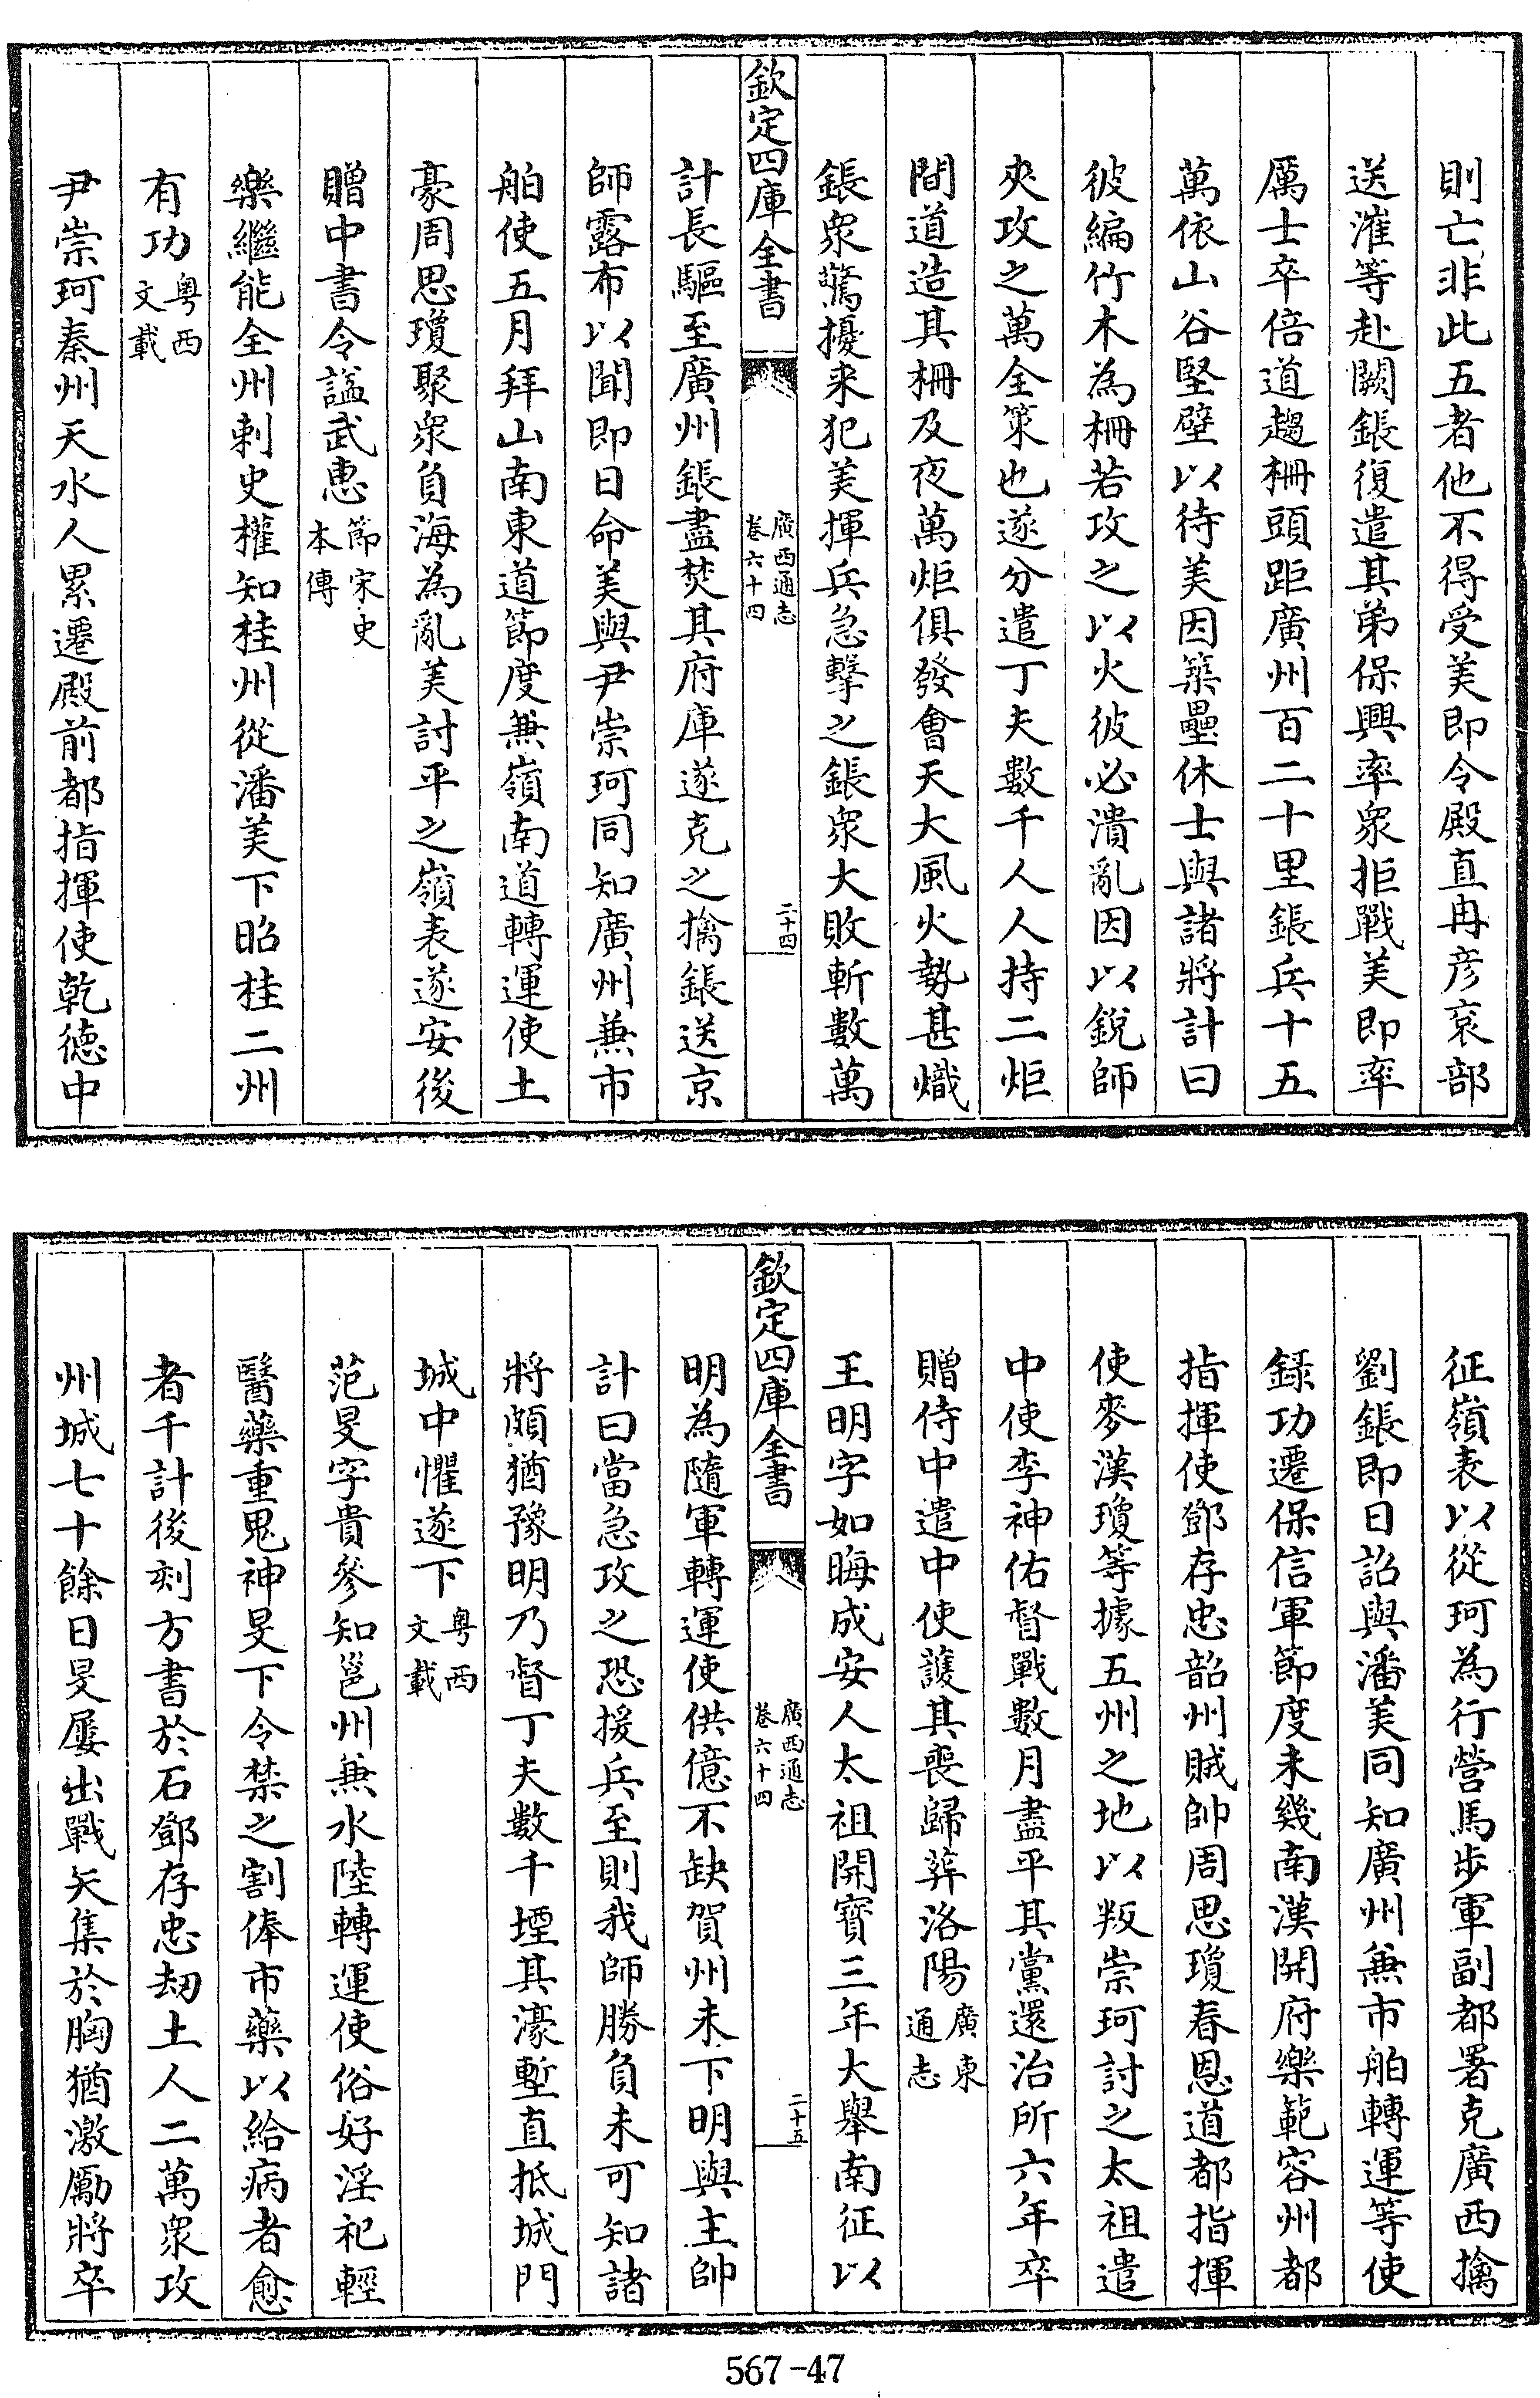 則亡非此五者他不得受美即令殿直冉彦衮部
送漼等赴闕鋹復遣其弟保興率衆拒戰美即率
厲士卒倍道趨柵頭距廣州百二十里鋹兵十五
萬依山谷堅壁以待美因築壘休士與諸將計曰
彼編竹木為柵若攻之以火彼必潰亂因以銳師
夾攻之萬全策也遂分遣丁夫數千人人持二炬
間道造其柵及夜萬炬俱發會天大風火勢甚熾
鋹衆驚擾来犯美揮兵急擊之鋹衆大敗斬數萬
欽定四庫全書 廣西通志 卷六十四 二十四
計長驅至廣州鋹盡焚其府庫遂克之擒鋹送京
師露布以聞即日命美與尹崇珂同知廣州兼市
舶使五月拜山南東道節度兼嶺南道轉運使土
豪周思瓊聚衆負海為亂美討平之嶺表遂安後
贈中書令諡武惠節宋史本傳
樂繼能全州刺史權知桂州從潘美下昭桂二州
有功粤西文載
尹崇珂秦州天水人累遷殿前都指揮使乾德中
征嶺表以從珂為行營馬步軍副都署克廣西擒
劉鋹即日詔與潘美同知廣州兼市舶轉運等使
録功遷保信軍節度未幾南漢開府樂範容州都
指揮使鄧存忠韶州賊帥周思瓊春恩道都指揮
使麥漢瓊等據五州之地以叛崇珂討之太祖遣
中使李神佑督戰數月盡平其黨還治所六年卒
贈侍中遣中使護其喪歸葬洛陽廣東通志
王明字如晦成安人太祖開寳三年大舉南征以
欽定四庫全書 廣西通志 卷六十四 二十五
明為隨軍轉運使供億不缺賀州未下明與主帥
計曰當急攻之恐援兵至則我師勝負未可知諸
將頗猶豫明乃督丁夫數千堙其濠塹直抵城門
城中懼遂下粤西文載
范旻字貴參知邕州兼水陸轉運使俗好淫祀輕
醫藥重鬼神旻下令禁之割俸市藥以給病者愈
者千計後刻方書於石鄧存忠刼土人二萬衆攻
州城七十餘日旻屢出戰矢集於胸猶激勵將卒
567-47